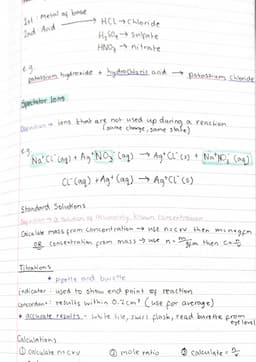 1st : Metal or base
2nd : Acid → HCL → Chloride
H₂SO₄ → Sulfate
HNO₃ → nitrate
e.g.
potassium hydroxide + hydrochloric acid → potassium chloride
Spectator Ions
Definition → ions that are not used up during a reaction
(same charge, same state)
e.g.
Na⁺Cl⁻ (aq) + Ag⁺NO₃⁻ (aq) → Ag⁺Cl⁻ (s) + Na⁺NO₃⁻ (aq)
Cl⁻ (aq) + Ag⁺ (aq) → Ag⁺Cl⁻ (s)
Standard Solutions
Definition → a solution of accurately known concentration
Calculate mass from concentration → use n=cv then m=n×gfm
OR concentration from mass → use n= m/gfm then c= n/v
Titrations
• pipette and burette
indicator : used to show end point of reaction
concordant : results within 0.2cm³ (use for average)
* Accurate results - white tile, swirl flask, read burette from
eye level
Calculations
① Calculate n=cv ② mole ratio ③ calculate =